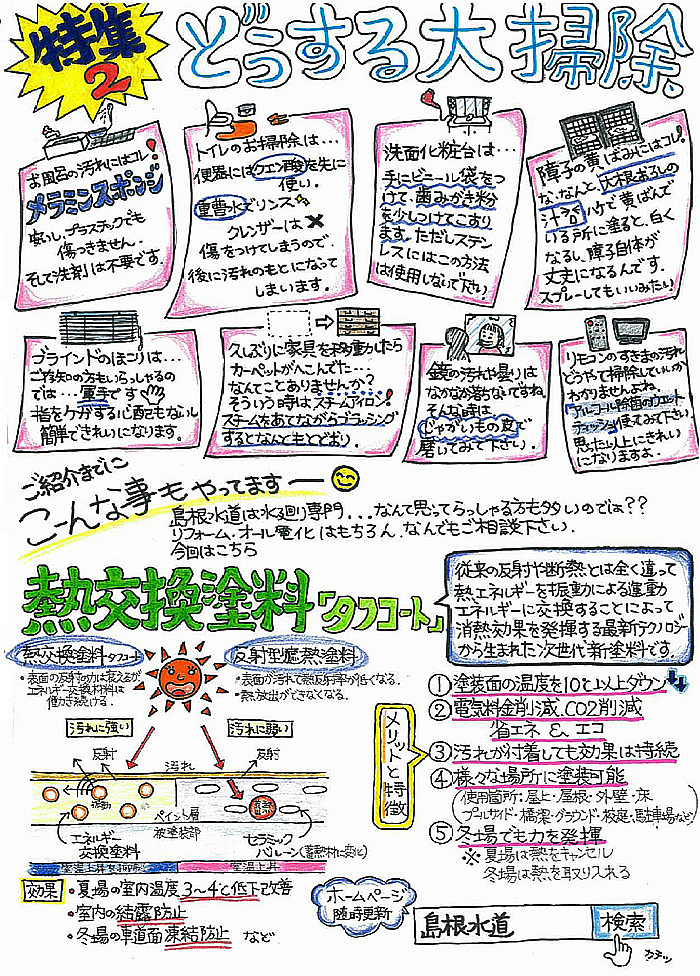 特集2
どうする大掃除
お風呂の汚れにはコレ!
メラミンスポンジ
安いし、プラスチックでも
傷つきません。
そして洗剤は不要です。
トイレのお掃除は…
便器にはクエン酸を先に
使い、
重曹水でリンス
クレンザーは×
傷をつけてしまうので
後に汚れのもとになって
しまいます。
洗面化粧台は…
手にビニール袋をつ
けて、歯みがき粉
を少しつけてこすり
ます。ただしステン
レスにはこの方法
は使用しないで下さい。
障子の黄ばみにはコレ!
な、なんと、大根おろしの
汁を ハケで黄ばんで
いる所に塗ると、白く
なるし、障子自体が
丈夫になるんです。
スプレーしてもいいみたい!
ブラインドのほこりは…
ご存知の方もいらっしゃるの
では…軍手です
指をケガする心配もないし
簡単できれいになります。
久しぶりに家具を移動したら
カーペットがへこんでた…
なんてことありませんか?
そういう時はスチームアイロン!
スチームをあてながらブラッシング
するとなんともとどおり。
鏡の汚れや曇りは
なかなか落ちないですね。
そんな時は
じゃがいもの皮で
磨いてみて下さい。
リモコンのすきまの汚れ
どうやって掃除していいか
わかりませんよね。
アルコール除菌のウエット
ティッシュ使ってみて下さい
思った以上にきれい
になりますよ。
ご紹介までに
こーんな事もやってますー
島根水道は水廻り専門...なんて思ってらっしゃる方も多いのでは??
リフォーム・オール電化はもちろん、なんでもご相談下さい。
今回はこちら
熱交換塗料「タフコート」
従来の反射や断熱とは全く違って
熱エネルギーを振動による運動
エネルギーに交換することによって
消熱効果を発揮する最新テクノロジー
から生まれた次世代新塗料です。
熱交換塗料タフコート
・表面の反射の力は衰えるが
エネルギー交換材料は
働き続ける。
反射型遮熱塗料
・表面が汚れて熱反射率が低くなる。
・熱放出ができなくなる。
汚れに強い
汚れに弱い
反射
汚れ
反射
振動
蓄熱
ペイント層
被塗装部
エネルギー
交換塗料
セラミック
バルーン(蓄熱材に変化)
室温上昇を抑制
室温上昇
メリットと特徴
①塗装面の温度を10℃以上ダウン
②電気料金削減、CO2削減
省エネ & エコ
③汚れが付着しても効果は持続
④様々な場所に塗装可能
(使用箇所:屋上・屋根・外壁・床
プールサイド・橋梁・グラウンド・校庭・駐車場など)
⑤冬場でも力を発揮
※夏場は熱をキャンセル
冬場は熱を取り入れる
効果
・夏場の室内温度3〜4℃低下改善
・室内の結露防止
・冬場の車道面凍結防止 など
ホームページ
随時更新
島根水道 検索
カチッ